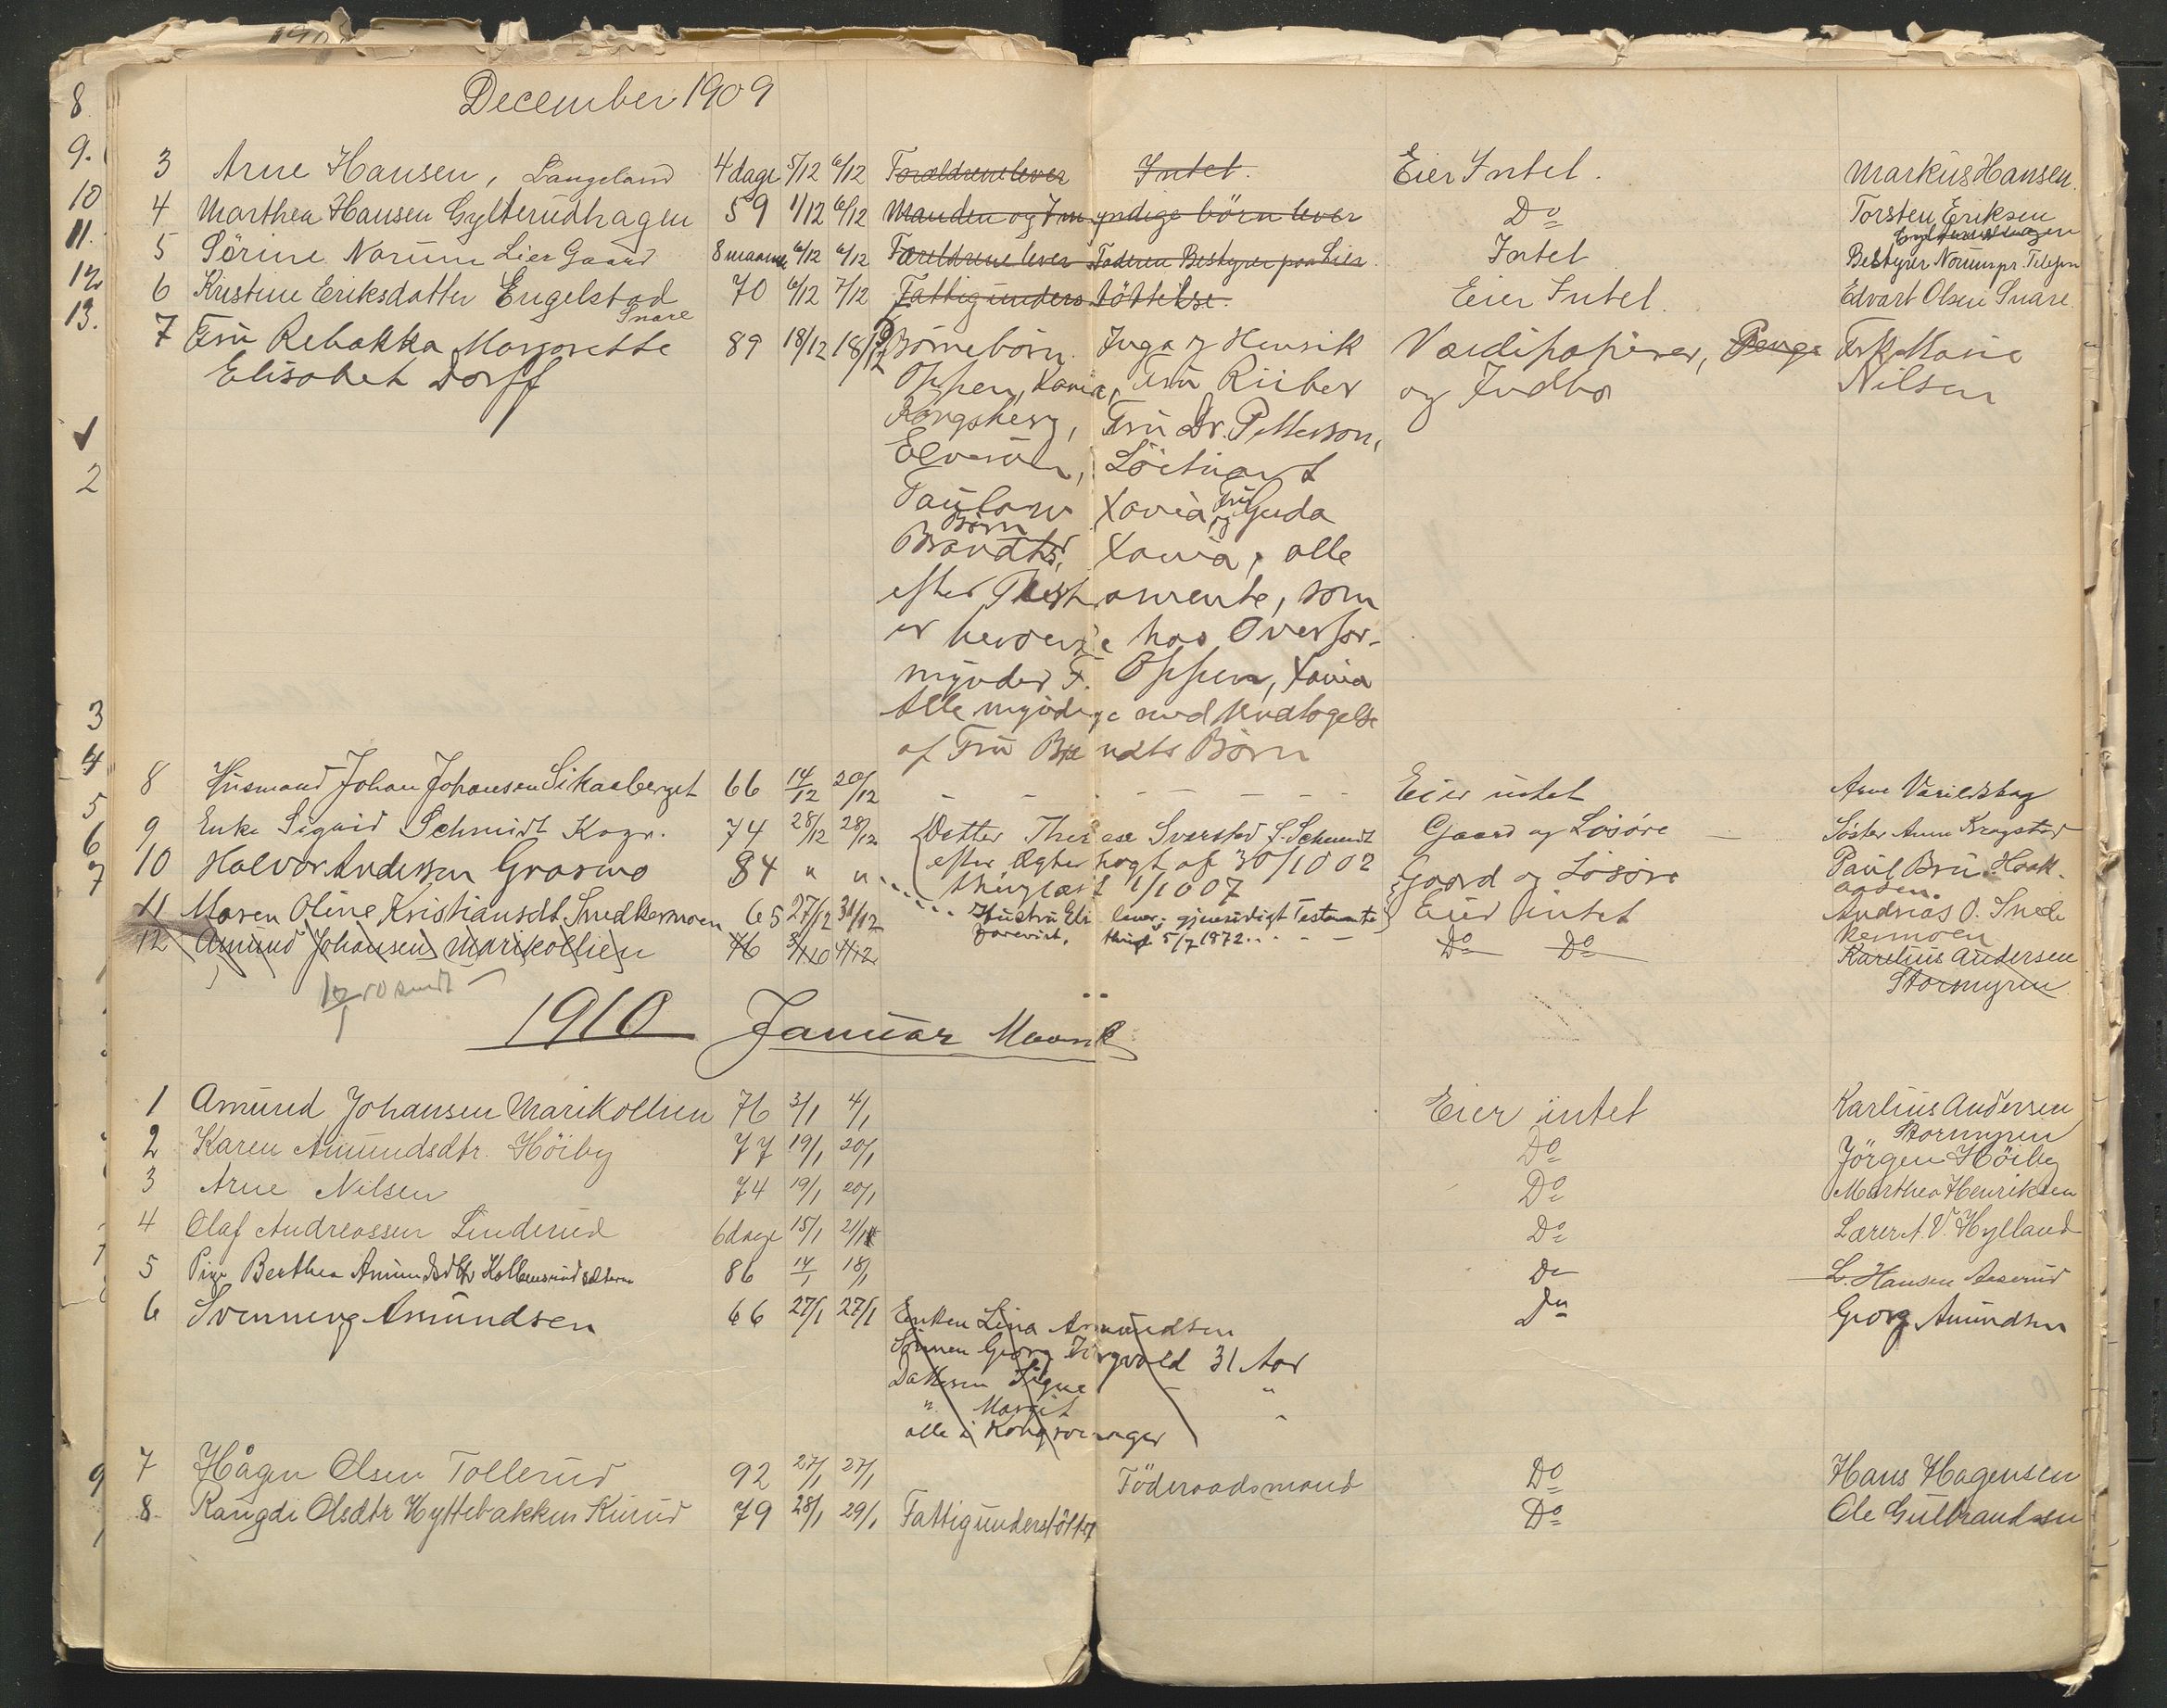 December 1909
3 Arne Hansen, Langeland 4 dage 5/12 6/12 Forældrene lever Intet. Eier Intet. Markus Hansen.
4 Marthea Hansen Gylterudhagen 59 1/12 6/12 Manden og myndige börn lever Do Torsten Eriksen
5 Sörine Norum Lier Gaard 8 maaner 6/12 6/12 Forældrene lever Faderen Bestyrer paa Lier. Intet Bestyrer Norum pr. Telefon
6 Kristine Eriksdatter Engelstad 70 6/12 7/12 Fattigunderstöttelse. Eier Intet. Edvart Olsen Snare.
Snare
7 Fru Rebakka Margrethe 89 18/12 18/12 Börnebörn. Inga og Henrik Værdipapirer, Penge Frk. Marie
Elisabet Dorff Oppen, Xania, Fru Riiber og Indbo Nilsen
Kongsberg, Fru Dr. Petterson,
Elverum, Löitnant
Paulsen Xania og Fru Guda
Brandts Börn, Xania, alle
efter Testamente, som
er beroende hos Overfor-
mynder F. Oppen, Xania
Alle myndige med Undtagelse
af Fru Brandts Börn
8 Husmand Johan Johansen Sikaaberget 66 14/12 20/12 - - - - - - - Eier intet Arne Varildskog
9 Enke Sigrid Schmidt Kogr. 74 28/12 28/12 Detter Therese Sverstad f. Schmidt Gaard og Lösöre Söster Anne Kragstad
10 Halvor Andersen Grasmo 84 " " efter Ægtepagt af 30/10 02 Gaard og Lösöre Paul Bru. Haak-
thinglæst 1/10 07 aasen.
11 Maren Oline Kristiansdt. Snedkermoen 65 27/12 31/12 Hustru Eli lever; gjensidigt Testamente Eier intet Andreas O. Sned-
thingl. 5/7 1872 kermoen
12 Amund Johansen Marikollien 76 3/1 10 4/12 Do Do Karelius Andersen
Stormyren
1910 Januar Maaned
1 Amund Johansen Marikollien 76 3/1 4/1 Eier intet Karlius Andersen
Stormyren
2 Karen Amundsdtr. Höiby 77 19/1 20/1 Do Jörgen Höiby
3 Arne Nilsen 74 19/1 20/1 Do Marthea Henriksen
4 Olaf Andreassen Linderud 6 dage 15/1 21/1 Do Lærer A. V. Hylland
5 Pige Berthea Amundsdtr Kolbensrud 86 14/1 18/1 Do L. Hansen Aaserud
6 Svenning Amundsen 66 27/1 27/1 Enken Lina Amundsen Do Georg Amundsen
Sönnen Georg Torgvald 31 Aar
Datteren Signe - "
" Margit "
alle i Kongsvinger
7 Hågen Olsen Tollerud 92 27/1 27/1 Föderaadsmand Do Hans Hagensen
8 Rangdi Olsdtr Hyttebakken Kurud 79 28/1 29/1 Fattigunderstöttet Do Ole Gulbrandsen
8
9.
10
11.
12
13.
1
2
3
4
5
6
7
9